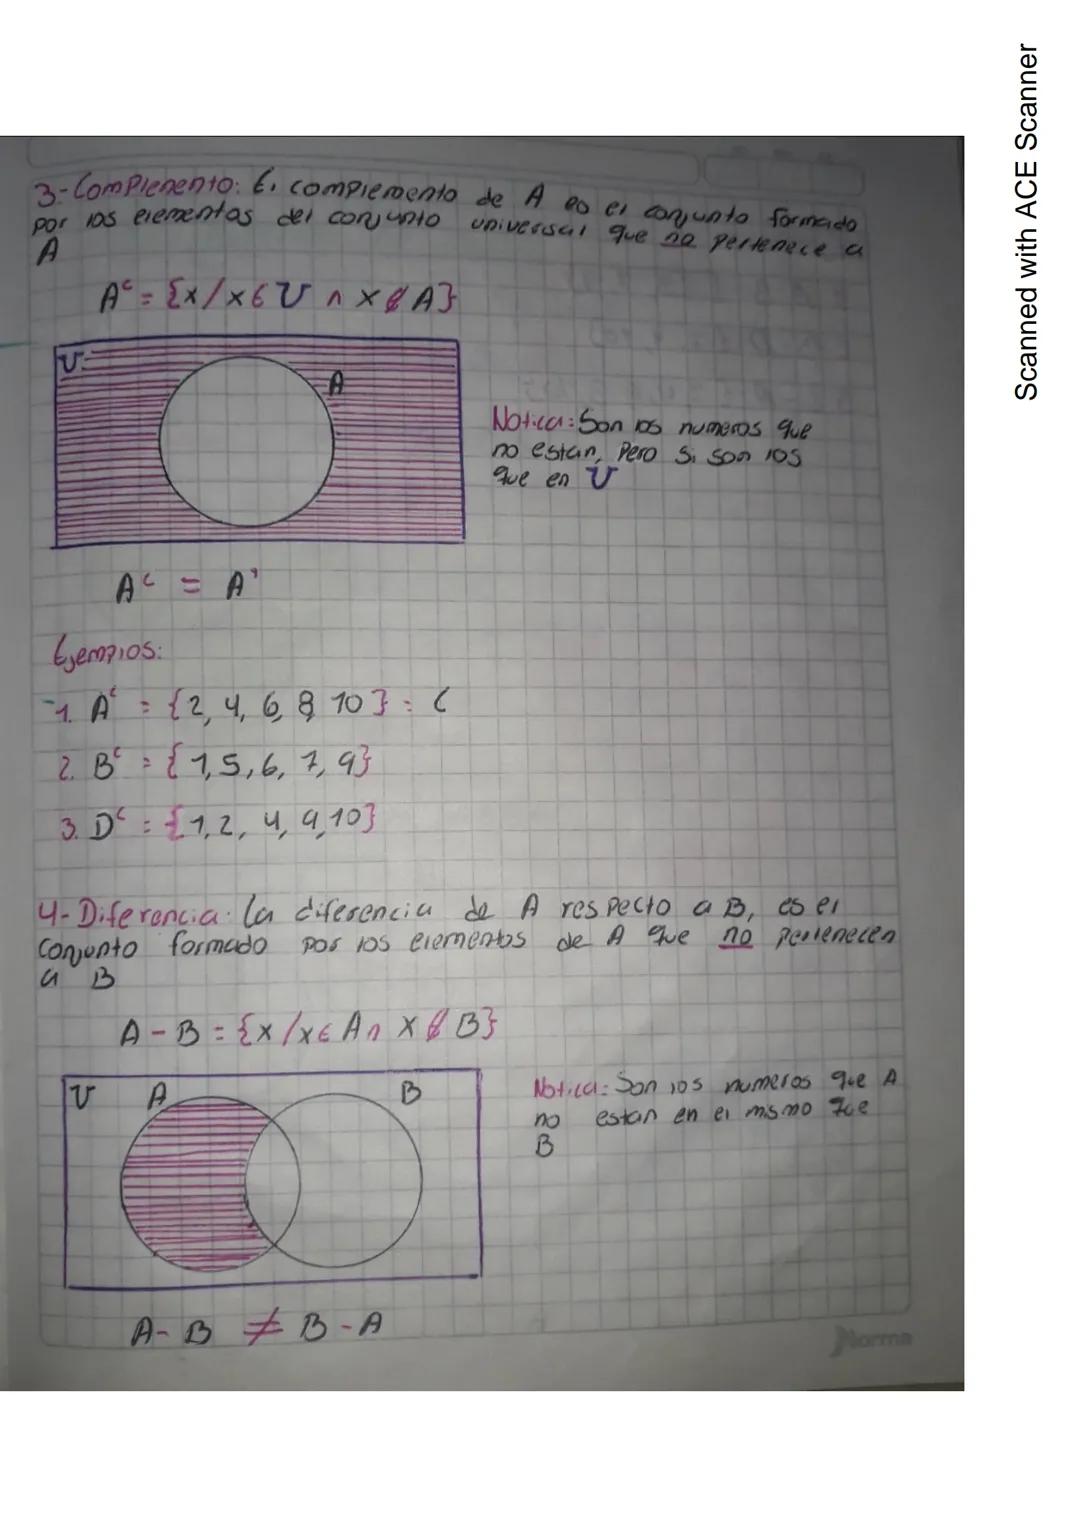 3-Complemento: El complemento de A es el conjunto formado
por los elementos del conjunto universal que no pertenece a
A
Aᶜ = {x/x∈U ∧ x∉A}
U
A
Notica: Son los numeros que
no estan, Pero si son los
que en U
Aᶜ = A'
Ejemplos:
1. Aᶜ = {2, 4, 6, 8, 10} = C
2. Bᶜ = {1, 5, 6, 7, 9}
3. Dᶜ = {1, 2, 4, 9, 10}
4-Diferencia: La diferencia de A respecto a B, es el
conjunto formado por los elementos de A que no pertenecen
a B
A - B = {x/x∈A ∧ x∉B}
U A B
Notica: Son los numeros que A
no estan en el mismo que
B
A - B ≠ B - A
Norma
Scanned with ACE Scanner